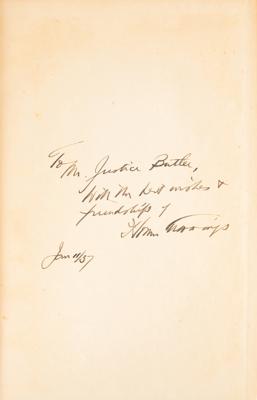 To
Mr. Justice Butler,
With the best wishes &
friendships of
Homer Cummings
Jan 11/37